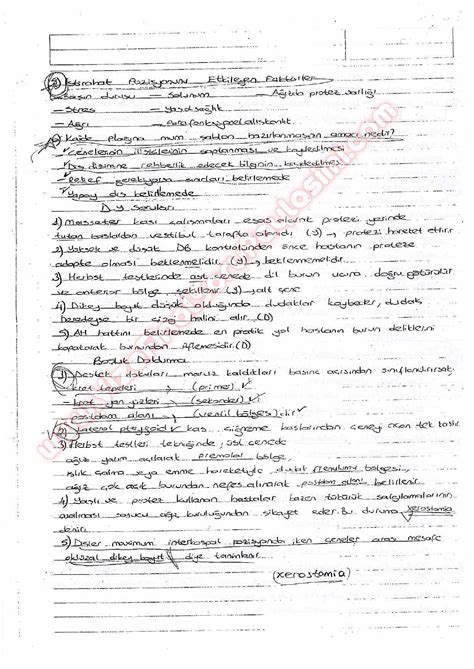 2) İstirahat Pozisyonunu Etkileyen Faktörler
— Başın duruşu — Solunum — Ağızda protez varlığı
— Stres — Yaş, sağlık
— Ağrı — Parafonksiyonel alışkanlık
Kaide plağına mum şablon hazırlanmasının amacı nedir?
✓ Çenelerarası ilişkilerinin saptanması ve kaydedilmesi
✓ Diş dizimine rehberlik edecek bilginin kaydedilmesi
✓ Relief gerekiyorsa sınırları belirlemede
✓ Yapay diş belirlemede
D.Y Soruları
1) Massater kası çalışmaları esas olarak protezi yerinde
tutan baslardan vestibul tarafta alanıdı (Y) → protezi hareket ettirir
2) Yüksek ve düşük DB kontrolünden önce hastanın proteze
adapte olması beklenmelidir. (Y) → beklenmemelidir.
3) Herbst testlerinde alt çenede dil burun ucuna doğru götürülür
ve anterior bölge şekillenir (Y) → alt çene
4) Dikey boyut düşük olduğunda dudaklar kaybeder, dudak
neredeyse bir çizgi halini alır. (D)
5) AH hattını belirlemede en pratik yol hastanın burun deliklerini
kapatarak burnundan üflemesidir. (D)
Boşluk Doldurma
1) Destek dokuları maruz kaldıkları basınç açısından sınıflandırırsak
— kret tepeleri (primer) ✓
— kret yan yüzleri (sekonder) ✓
— postdam alanı (ventil bölgesi) dir ✓
2) Lateral pterygoid kas çiğneme kaslarından çeneyi açan tek kastır
3) Herbst testleri tekniğinde; üst çenede
ağız yarım açılarak premolar bölge,
ıslık çalma veya emme hareketiyle dudak frenulumu bölgesi,
ağız çok açık burundan nefes alınarak postdam alanı belirlenir.
4) Yaşlı ve protez kullanan hastalar bazen tükürük salgılarının
azalması sonucu ağız kuruluğundan şikayet eder. Bu duruma xerostomia
denir.
5) Dişler maksimum interkuspal pozisyonda iken çeneler arası mesafe
oklüzal dikey boyut diye tanımlanır.
(xerostomia)